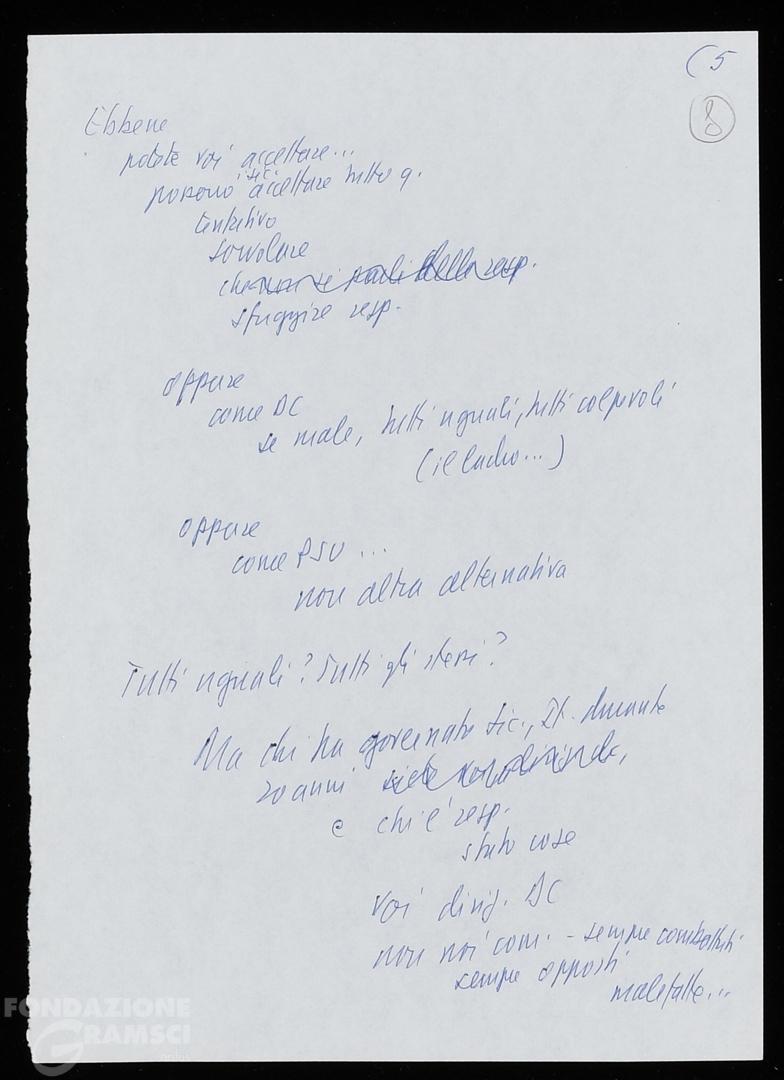 (5
8
Ebbene
potete voi accettare...
possono sic. accettare tutto q.
tentativo
sorvolare
che non si parli della resp.
sfuggire resp.
oppure
come DC
se male, tutti uguali, tutti colpevoli
(il ladro...)
oppure
come PSU ...
non altra alternativa
Tutti uguali? Tutti gli stessi?
Ma chi ha governato Sic., It. durante
20 anni
e chi è resp.
stato cose
Voi dirig. DC
non noi com. - sempre combattuti
sempre opposti
malefatte...
FONDAZIONE
GRAMSCI
onlus